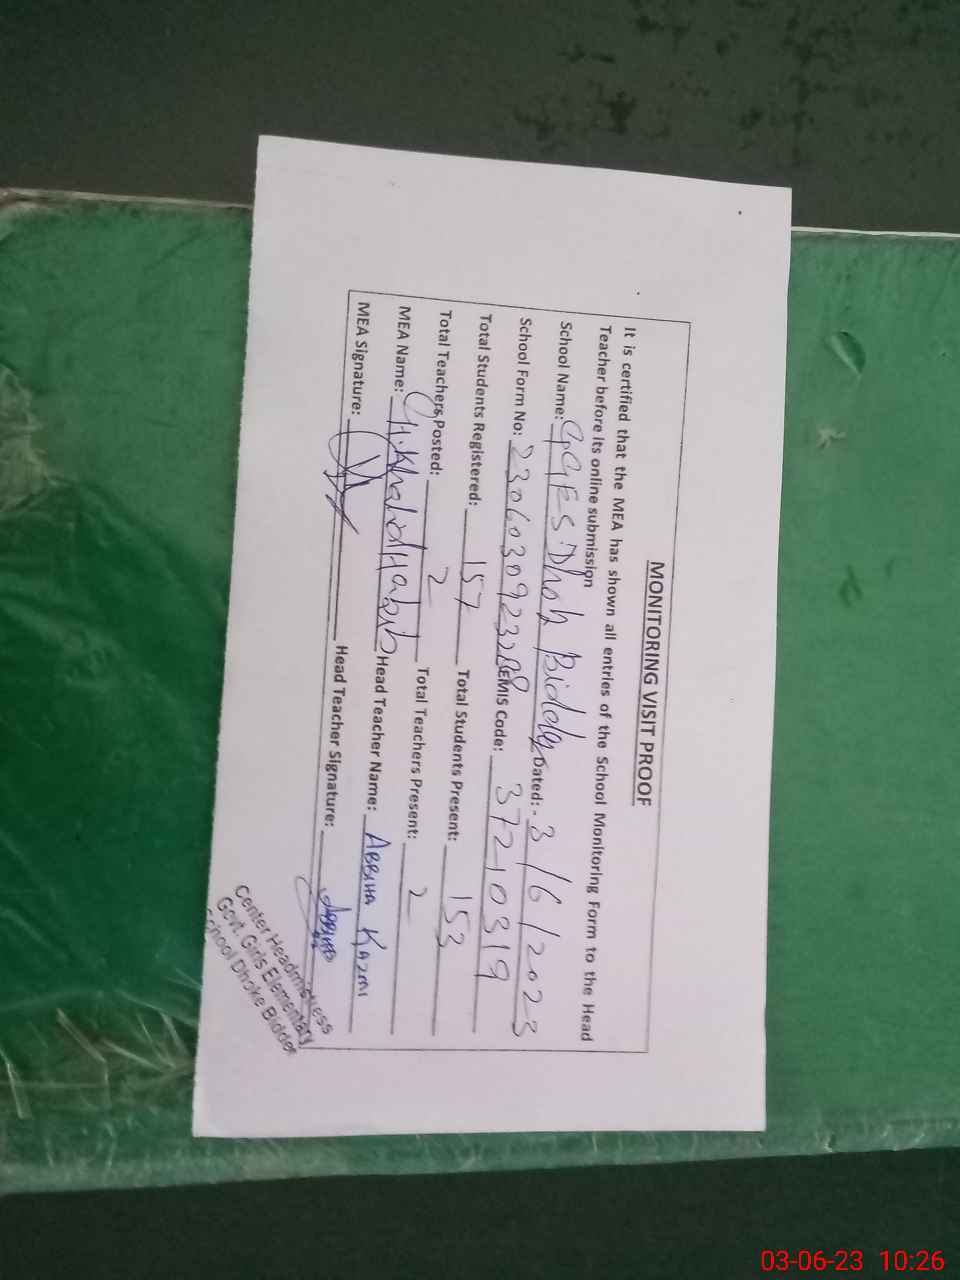 MONITORING VISIT PROOF
It is certified that the MEA has shown all entries of the School Monitoring Form to the Head
Teacher before its online submission
School Name: GGES Dhok Bidder Dated: - 3/6/2023
School Form No: EMIS Code: 37210319
Total Students Registered: 157 Total Students Present: 153
Total Teachers Posted: 2 Total Teachers Present: 2
MEA Name: Khalid Habib Head Teacher Name: ABBIHA KAZMI
MEA Signature: Head Teacher Signature:
Center Headmistress
Govt. Girls Elementary
School Dhoke Bidder
03-06-23 10:26